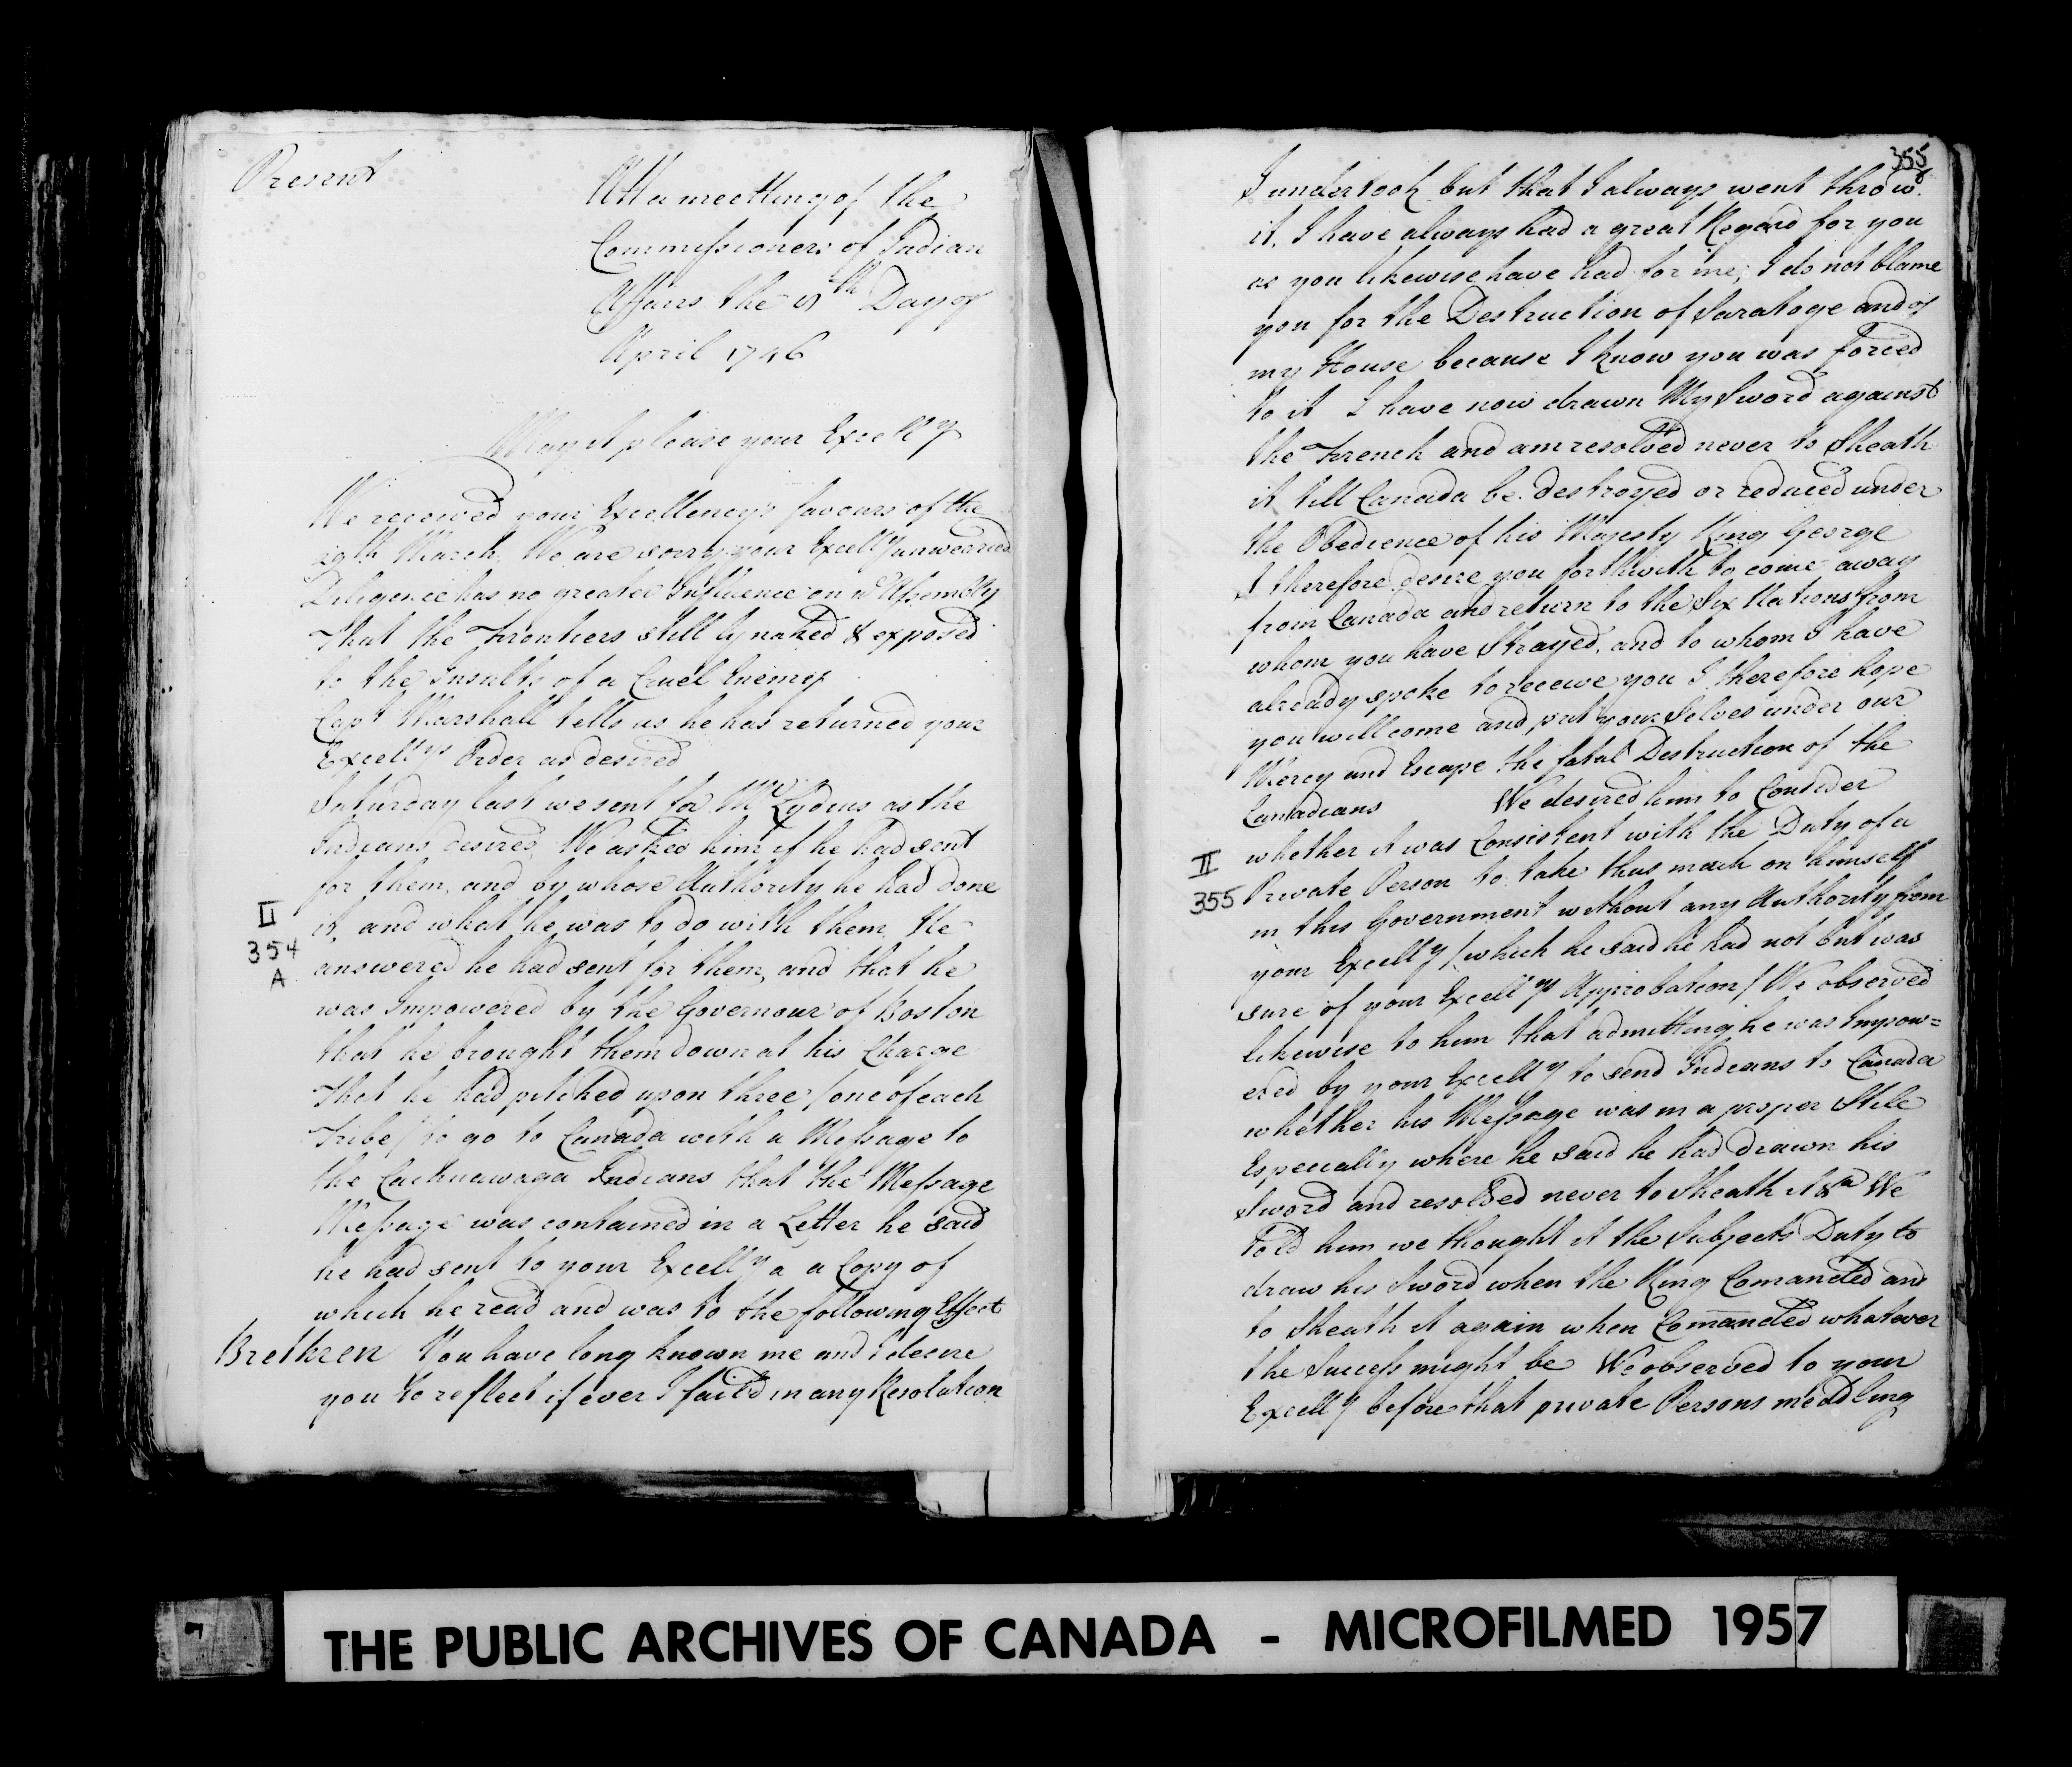 Present
Att a meetting of the
Commissioners of Indian
Affairs the th Day of
April 1746
May it please your Excelly
We received your Excellency's favours of the
29th March. We are sorry your Excelly unwearied
Diligence has no greater Influence on ye Assembly
That the Frontiers still ly naked & exposed
to the Insults of a Cruel Enemy
Capt Marshall tells us he has returned your
Excellys Order as desired
Saturday last we sent for Mr Lydius as the
Indians desired, We asked him if he had sent
for them, and by whose Authority he had done
it, and what he was to do with them, He
II
354
A
answered he had sent for them, and that he
was Impowered by the Governour of Boston
that he brought them down at his Charge
That he had pitched upon three / one of each
Tribe / to go to Canada with a Message to
the Cachnawaga Indians that the Message
Message was contained in a Letter he said
he had sent to your Excelly a a Copy of
which he read and was to the following Effect
Brethren You have long known me and I desire
you to reflect if ever I fail'd in any Resolution
355
I undertook but that I always went throw
it, I have always had a great Regard for you
as you likewise have had for me; I do not blame
you for the Destruction of Saratoge and of
my House because I know you was forced
to it I have now drawn My Sword against
the French and am resolved never to Sheath
it till Canada be destroyed or reduced under
the Obedience of his Majesty King George
I therefore desire you forthwith to come away
from Canada and return to the Six Nations from
whom you have Strayed, and to whom I have
already spoke to receive you I therefore hope
you will come and put your Selves under our
Mercy and Escape the fatal Destruction of the
Canadians We desired him to Consider
II
355
whether it was Consistent with the Duty of a
Private Person to take thus much on himself
in this Government without any Authority from
your Excelly / which he said he had not but was
sure of your Excellys Approbation / We observed
likewise to him that admitting he was Impow=
ered by your Excelly to send Indians to Canada
whether his Message was in a proper Stile
Especially where he said he had drawn his
Sword and resolved never to Sheath it &a We
told him we thought it the Subjects Duty to
draw his Sword when the King Comanded and
to Sheath it again when Comanded whatever
the Success might be We observed to your
Excelly before that private Persons meddling
THE PUBLIC ARCHIVES OF CANADA - MICROFILMED 1957